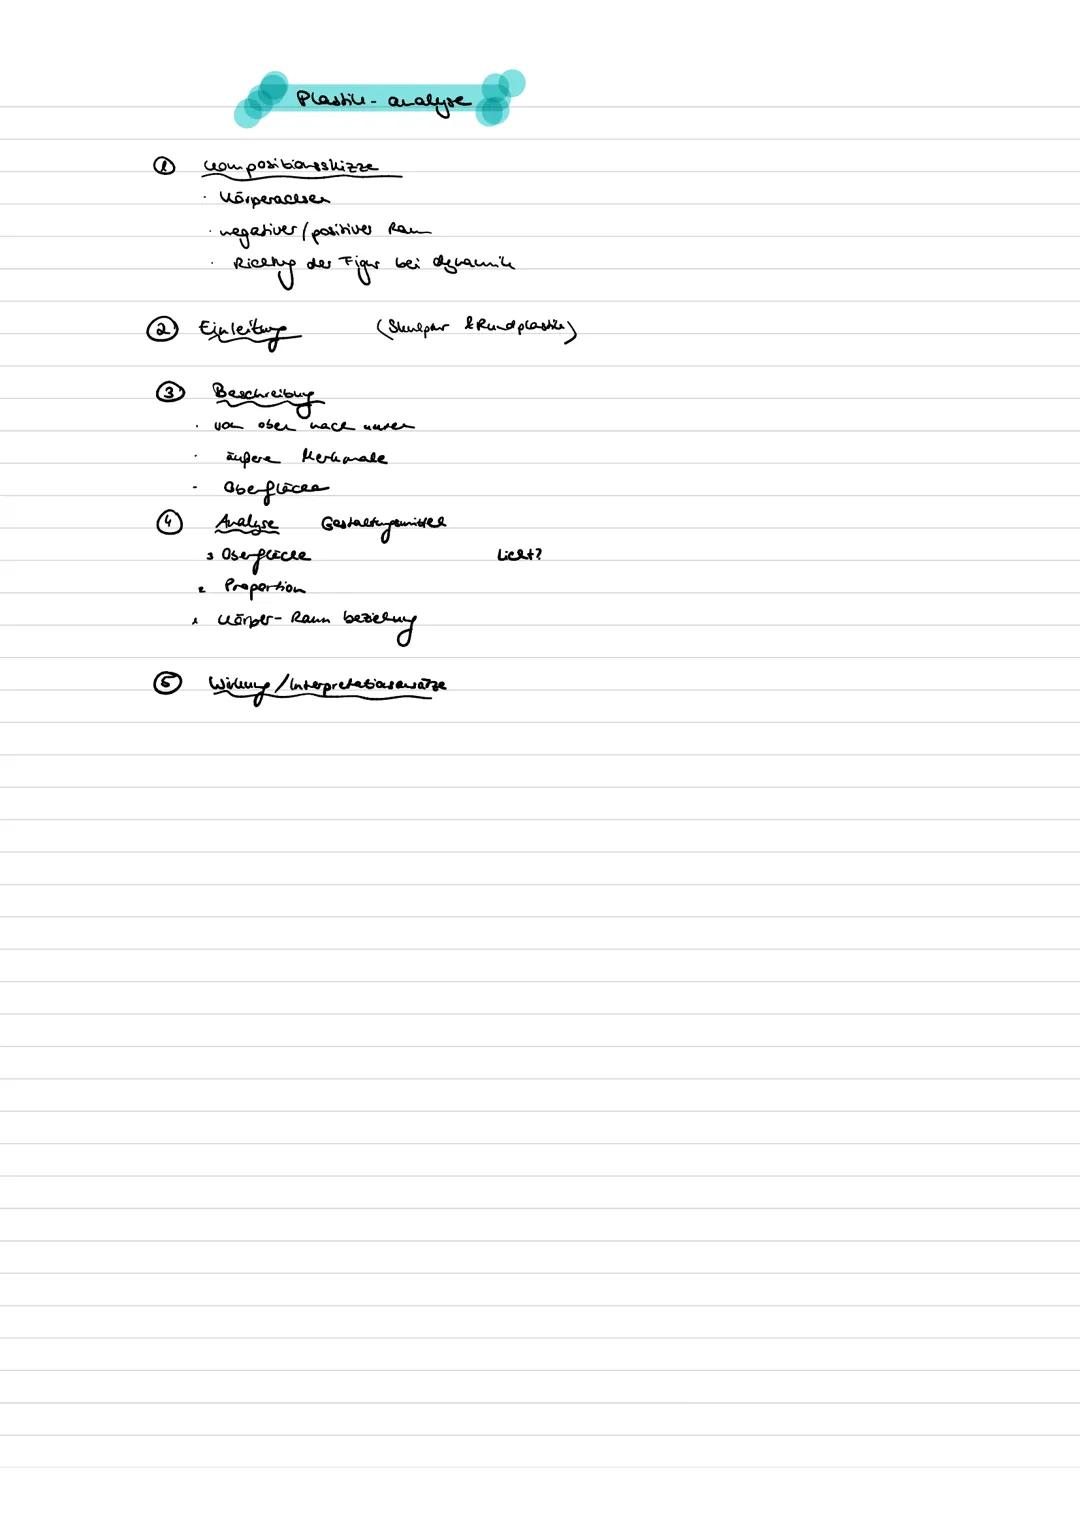 Plastik-analyse
① Kompositionsskizze
· Körperachsen
· negativer/positiver Raum
· Richtung der Figur bei dynamik
② Einleitung (Skulptur & Rundplastik)
③ Beschreibung
· von oben nach unten
· äußere Merkmale
- Oberfläche
④ Analyse Gestaltungsmittel
3 Oberfläche Licht?
2 Proportion
1 Körper-Raum beziehung
⑤ Wirkung/Interpretationsansätze